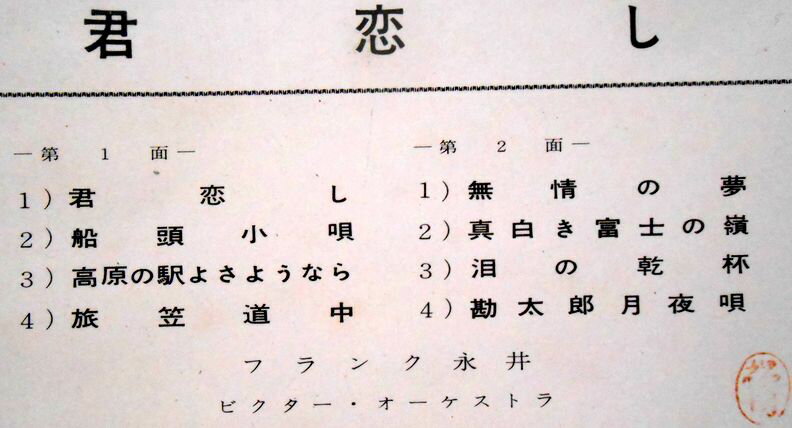 君恋し
―第1面―
1)君恋し
2)船頭小唄
3)高原の駅よさようなら
4)旅笠道中
―第2面―
1)無情の夢
2)真白き富士の嶺
3)泪の乾杯
4)勘太郎月夜唄
フランク永井
ビクター・オーケストラ